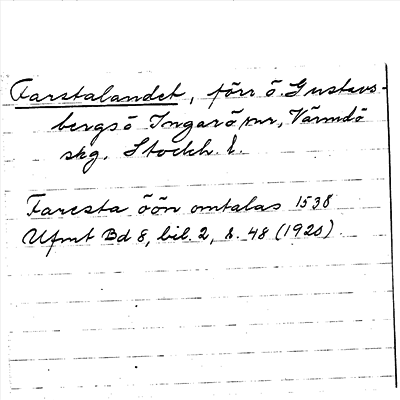 Farstalandet, förr ö. Gustavs-
bergs ö Ingarö snr, Värmdö
skg, Stockh. l.
Farcsta öön omtalas 1538
Ufmt Bd 8, bil. 2, s. 48 (1920).